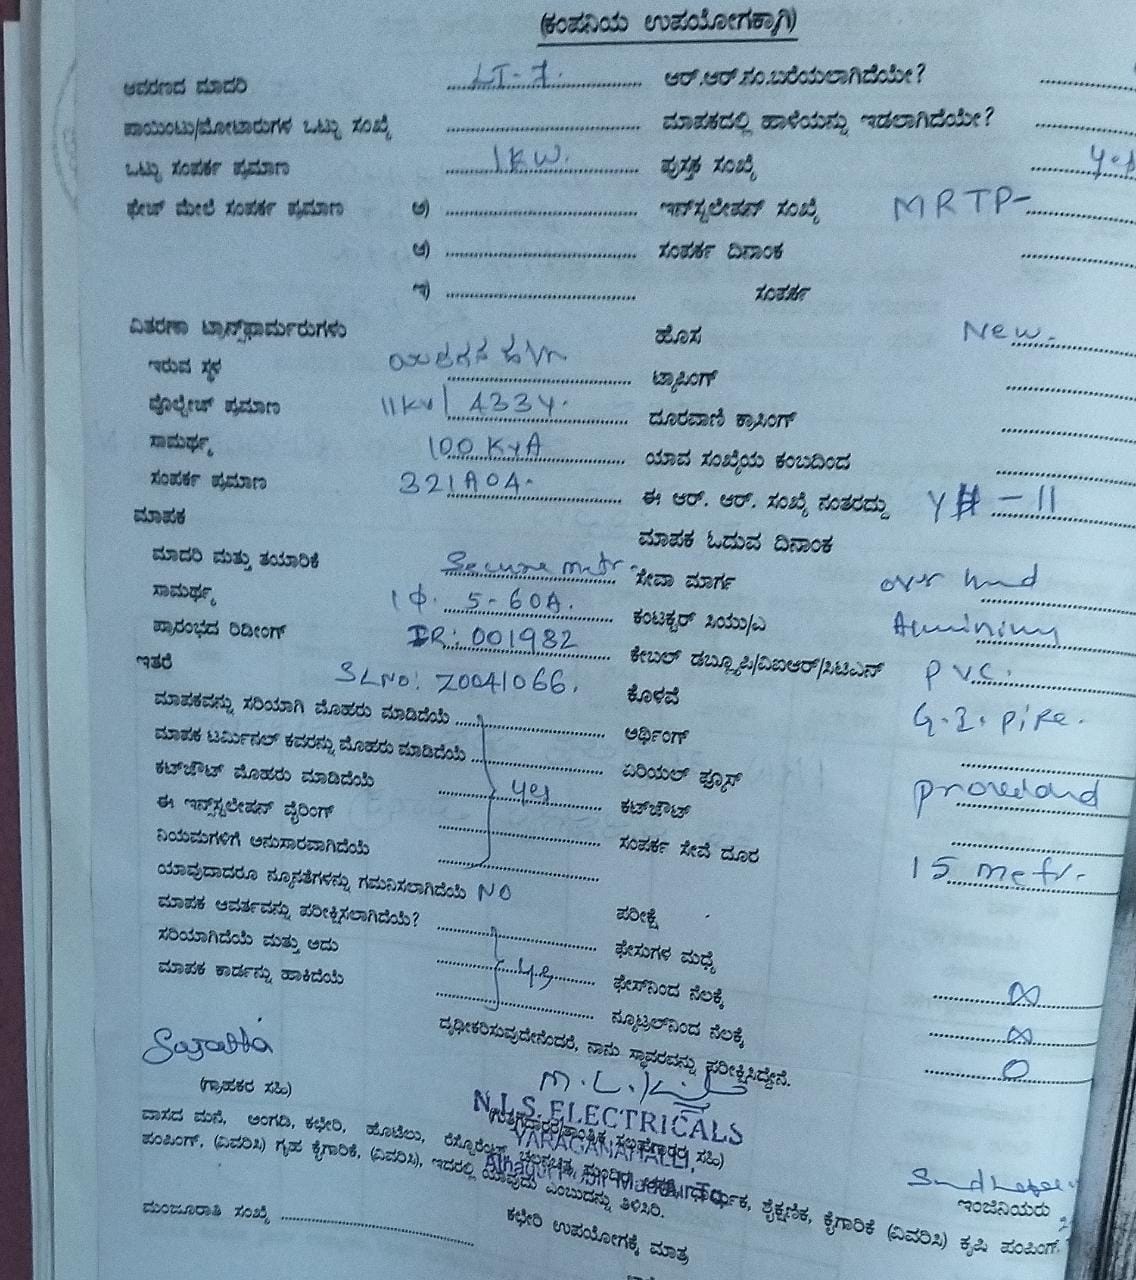 (ಕಂಪನಿಯ ಉಪಯೋಗಕ್ಕಾಗಿ)
ಆವರಣದ ಮಾದರಿ LT-7. ಆರ್.ಆರ್.ಸಂ.ಬರೆಯಲಾಗಿದೆಯೇ?
ಪಾಯಿಂಟು/ಮೋಟಾರುಗಳ ಒಟ್ಟು ಸಂಖ್ಯೆ ಮಾಪಕದಲ್ಲಿ ಹಾಳೆಯನ್ನು ಇಡಲಾಗಿದೆಯೇ?
ಒಟ್ಟು ಸಂಪರ್ಕ ಪ್ರಮಾಣ 1KW. ಪುಸ್ತಕ ಸಂಖ್ಯೆ
ಫೇಜ್ ಮೇಲೆ ಸಂಪರ್ಕ ಪ್ರಮಾಣ ಅ) ಇನ್‌ಸ್ಟಲೇಷನ್ ಸಂಖ್ಯೆ MRTP-
ಆ) ಸಂಪರ್ಕ ದಿನಾಂಕ
ಇ) ಸಂಪರ್ಕ
ವಿತರಣಾ ಟ್ರಾನ್ಸ್‌ಫಾರ್ಮರುಗಳು ಹೊಸ New.
ಇರುವ ಸ್ಥಳ ಟ್ಯಾಪಿಂಗ್
ವೊಲ್ಟೇಜ್ ಪ್ರಮಾಣ 11KV/ 433V. ದೂರವಾಣಿ ಕ್ರಾಸಿಂಗ್
ಸಾಮರ್ಥ್ಯ 100 KVA ಯಾವ ಸಂಖ್ಯೆಯ ಕಂಬದಿಂದ
ಸಂಪರ್ಕ ಪ್ರಮಾಣ ಈ ಆರ್. ಆರ್. ಸಂಖ್ಯೆ ನಂತರದ್ದು
ಮಾಪಕ ಮಾಪಕ ಓದುವ ದಿನಾಂಕ
ಮಾದರಿ ಮತ್ತು ತಯಾರಿಕೆ Secure metr. ಸೇವಾ ಮಾರ್ಗ
ಸಾಮರ್ಥ್ಯ 1 ϕ. 5-60A. ಕಂಟಕ್ಟರ್ ಸಿಯು/ಎ
ಪ್ರಾರಂಭದ ರಿಡೀಂಗ್ IR: 001982 ಕೇಬಲ್ ಡಬ್ಲ್ಯೂಪಿ/ವಿಐಆರ್/ಸಿಟಿಎಸ್ PVC.
ಇತರೆ SLNO: 20041066. ಕೊಳವೆ G.I. pipe.
ಮಾಪಕವನ್ನು ಸರಿಯಾಗಿ ಮೊಹರು ಮಾಡಿದೆಯೆ ಅರ್ಥಿಂಗ್
ಮಾಪಕ ಟರ್ಮಿನಲ್ ಕವರನ್ನು ಮೊಹರು ಮಾಡಿದೆಯೆ ಏರಿಯಲ್ ಫ್ಯೂಸ್
ಕಟ್‌ಔಟ್ ಮೊಹರು ಮಾಡಿದೆಯೆ yes ಕಟ್‌ಔಟ್
ಈ ಇನ್‌ಸ್ಟಲೇಷನ್ ವೈರಿಂಗ್ ಸಂಪರ್ಕ ಸೇವೆ ದೂರ 15 metr.
ನಿಯಮಗಳಿಗೆ ಅನುಸಾರವಾಗಿದೆಯೆ
ಯಾವುದಾದರೂ ನ್ಯೂನತೆಗಳನ್ನು ಗಮನಿಸಲಾಗಿದೆಯೆ NO ಪರೀಕ್ಷೆ
ಮಾಪಕ ಆವರ್ತವನ್ನು ಪರೀಕ್ಷಿಸಲಾಗಿದೆಯೆ? ಫೇಸುಗಳ ಮಧ್ಯೆ
ಸರಿಯಾಗಿದೆಯೆ ಮತ್ತು ಅದು ಫೇಸ್‌ನಿಂದ ನೆಲಕ್ಕೆ
ಮಾಪಕ ಕಾರ್ಡನ್ನು ಹಾಕಿದೆಯೆ ನ್ಯೂಟ್ರಲ್‌ನಿಂದ ನೆಲಕ್ಕೆ
ದೃಢೀಕರಿಸುವುದೇನೆಂದರೆ, ನಾನು ಸ್ಥಾವರವನ್ನು ಪರೀಕ್ಷಿಸಿದ್ದೇನೆ.
(ಗ್ರಾಹಕರ ಸಹಿ)
N.L.S. ELECTRICALS
YARAGANAHALLI,
ವಾಸದ ಮನೆ, ಅಂಗಡಿ, ಕಛೇರಿ, ಹೊಟೆಲು, ರೆಸ್ಟೋರೆಂಟ್, ಶೈಕ್ಷಣಿಕ, ಕೈಗಾರಿಕೆ (ವಿವರಿಸಿ) ಕೃಷಿ ಪಂಪಿಂಗ್,
ಪಂಪಿಂಗ್, (ವಿವರಿಸಿ) ಗೃಹ ಕೈಗಾರಿಕೆ, (ವಿವರಿಸಿ), ಇದರಲ್ಲಿ ಯಾವುದು ಎಂಬುದನ್ನು ತಿಳಿಸಿರಿ.
ಇಂಜಿನಿಯರು
ಮಂಜೂರಾತಿ ಸಂಖ್ಯೆ ಕಛೇರಿ ಉಪಯೋಗಕ್ಕೆ ಮಾತ್ರ